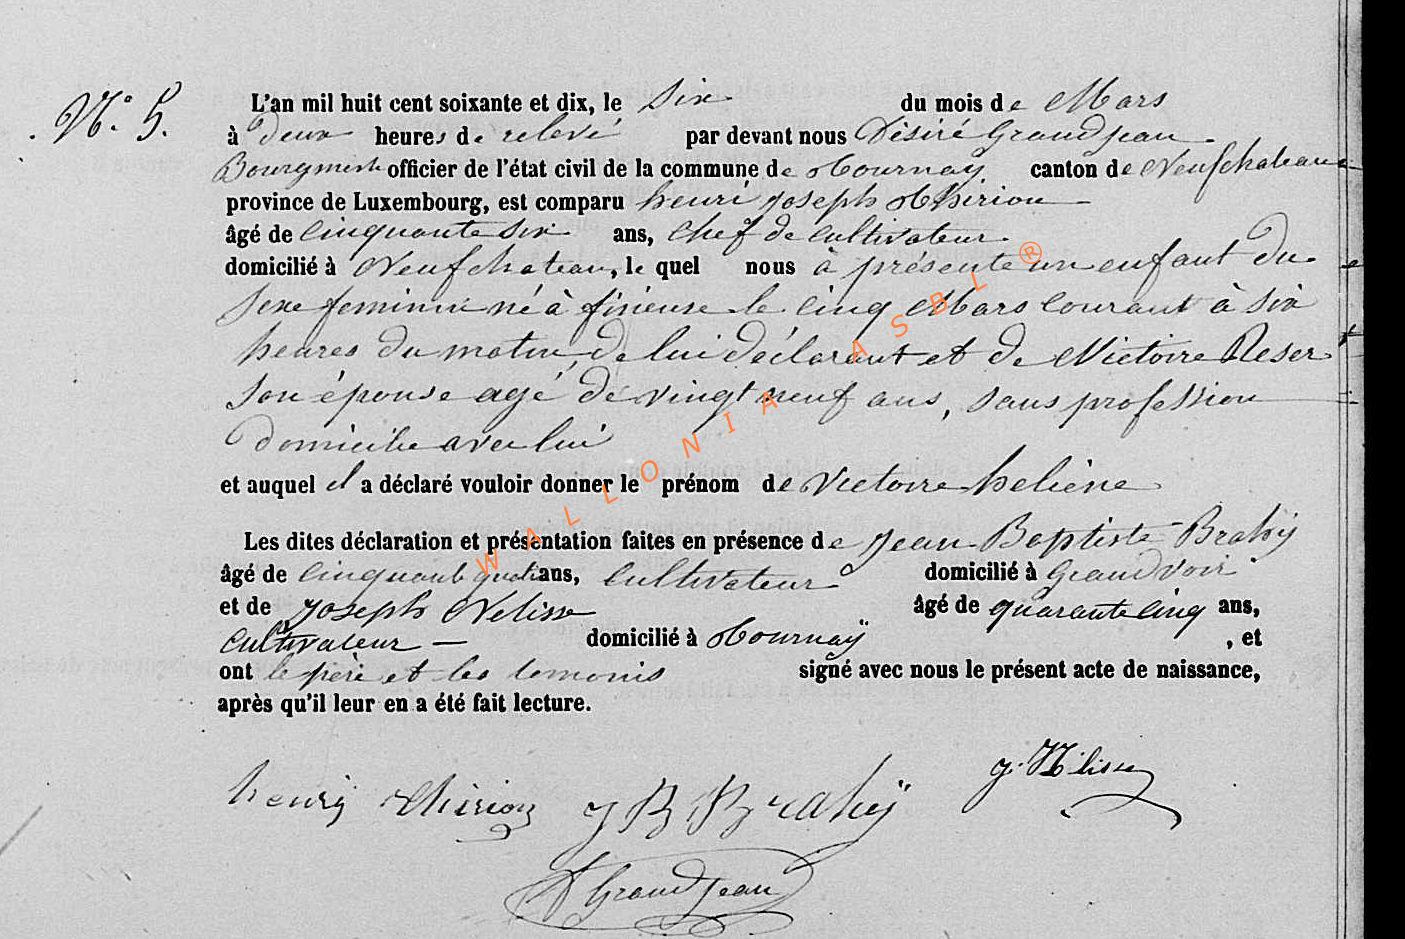 N.° 5.
L'an mil huit cent soixante et dix, le six du mois de Mars
à deux heures de relevé par devant nous Désiré Grandjean
Bourgmestre officier de l'état civil de la commune de Tournay canton de Neufchateau
province de Luxembourg, est comparu henri joseph Thirion
âgé de cinquante six ans, chef de cultivateur
domicilié à Neufchateau, le quel nous à présenté un enfant du
sexe feminin né à le cinq Mars courant à six
heures du matin, de lui déclarant et de Victoire Reser
son épouse agé de vingt neuf ans, sans profession
domicilié avec lui
et auquel il a déclaré vouloir donner le prénom de Victoire heliène
Les dites déclaration et présentation faites en présence de jean Baptiste Brahÿ
âgé de cinquante quatre ans, cultivateur domicilié à Grandvoir
et de joseph Nelisse âgé de quarante cinq ans,
cultivateur — domicilié à Tournaÿ , et
ont le père et les temoins signé avec nous le présent acte de naissance,
après qu'il leur en a été fait lecture.
j. Nélisse
henri thirion j B Brahÿ
D Grandjean
WALLONIA ASBL ®